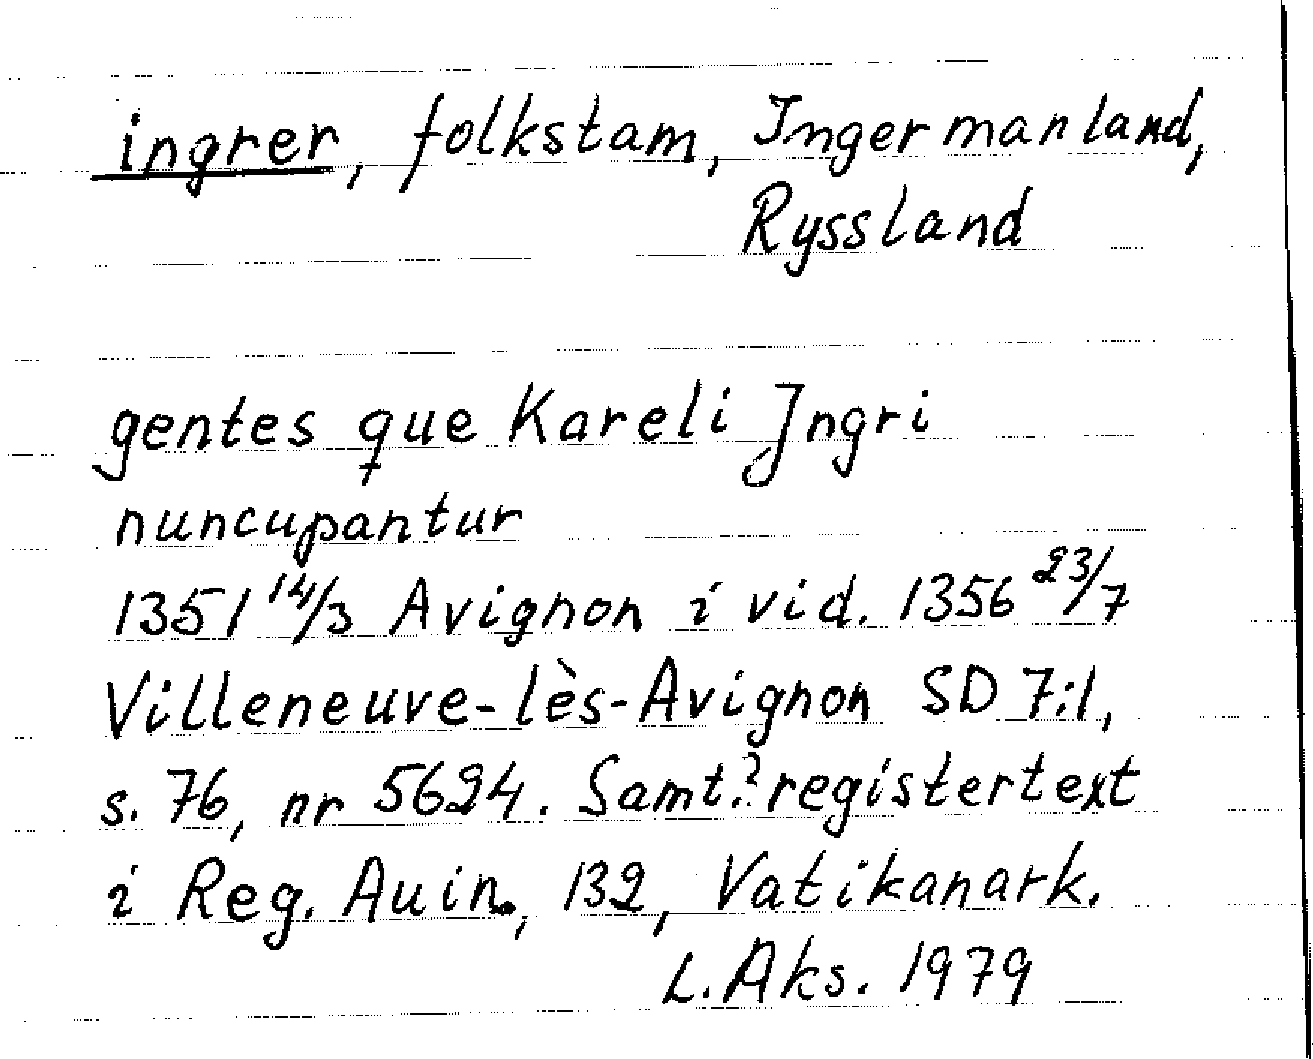 ingrer, folkstam, Ingermanland,
Ryssland
gentes que Kareli Jngri
nuncupantur
1351 14/3 Avignon i vid. 1356 23/7
Villeneuve-lès-Avignon SD 7:1,
s. 76, nr 5624. Samt.? registertext
i Reg. Auin., 132, Vatikanark.
L. Aks. 1979